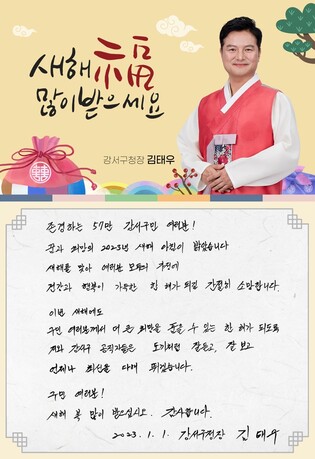 새해 福
많이 받으세요
강서구청장 김태우
존경하는 57만 강서구민 여러분!
꿈과 희망의 2023년 새해 아침이 밝았습니다
새해를 맞아 여러분 모두의 가정에
건강과 행복이 가득한 한 해가 되길 간절히 소망합니다.
이번 새해에도
구민 여러분께서 더 큰 희망을 품을 수 있는 한 해가 되도록
저와 강서구 공직자들은 토끼처럼 잘 듣고, 잘 보고
언제나 최선을 다해 뛰겠습니다.
구민 여러분!
새해 복 많이 받으십시오. 감사합니다.
2023. 1. 1. 강서구청장 김태우